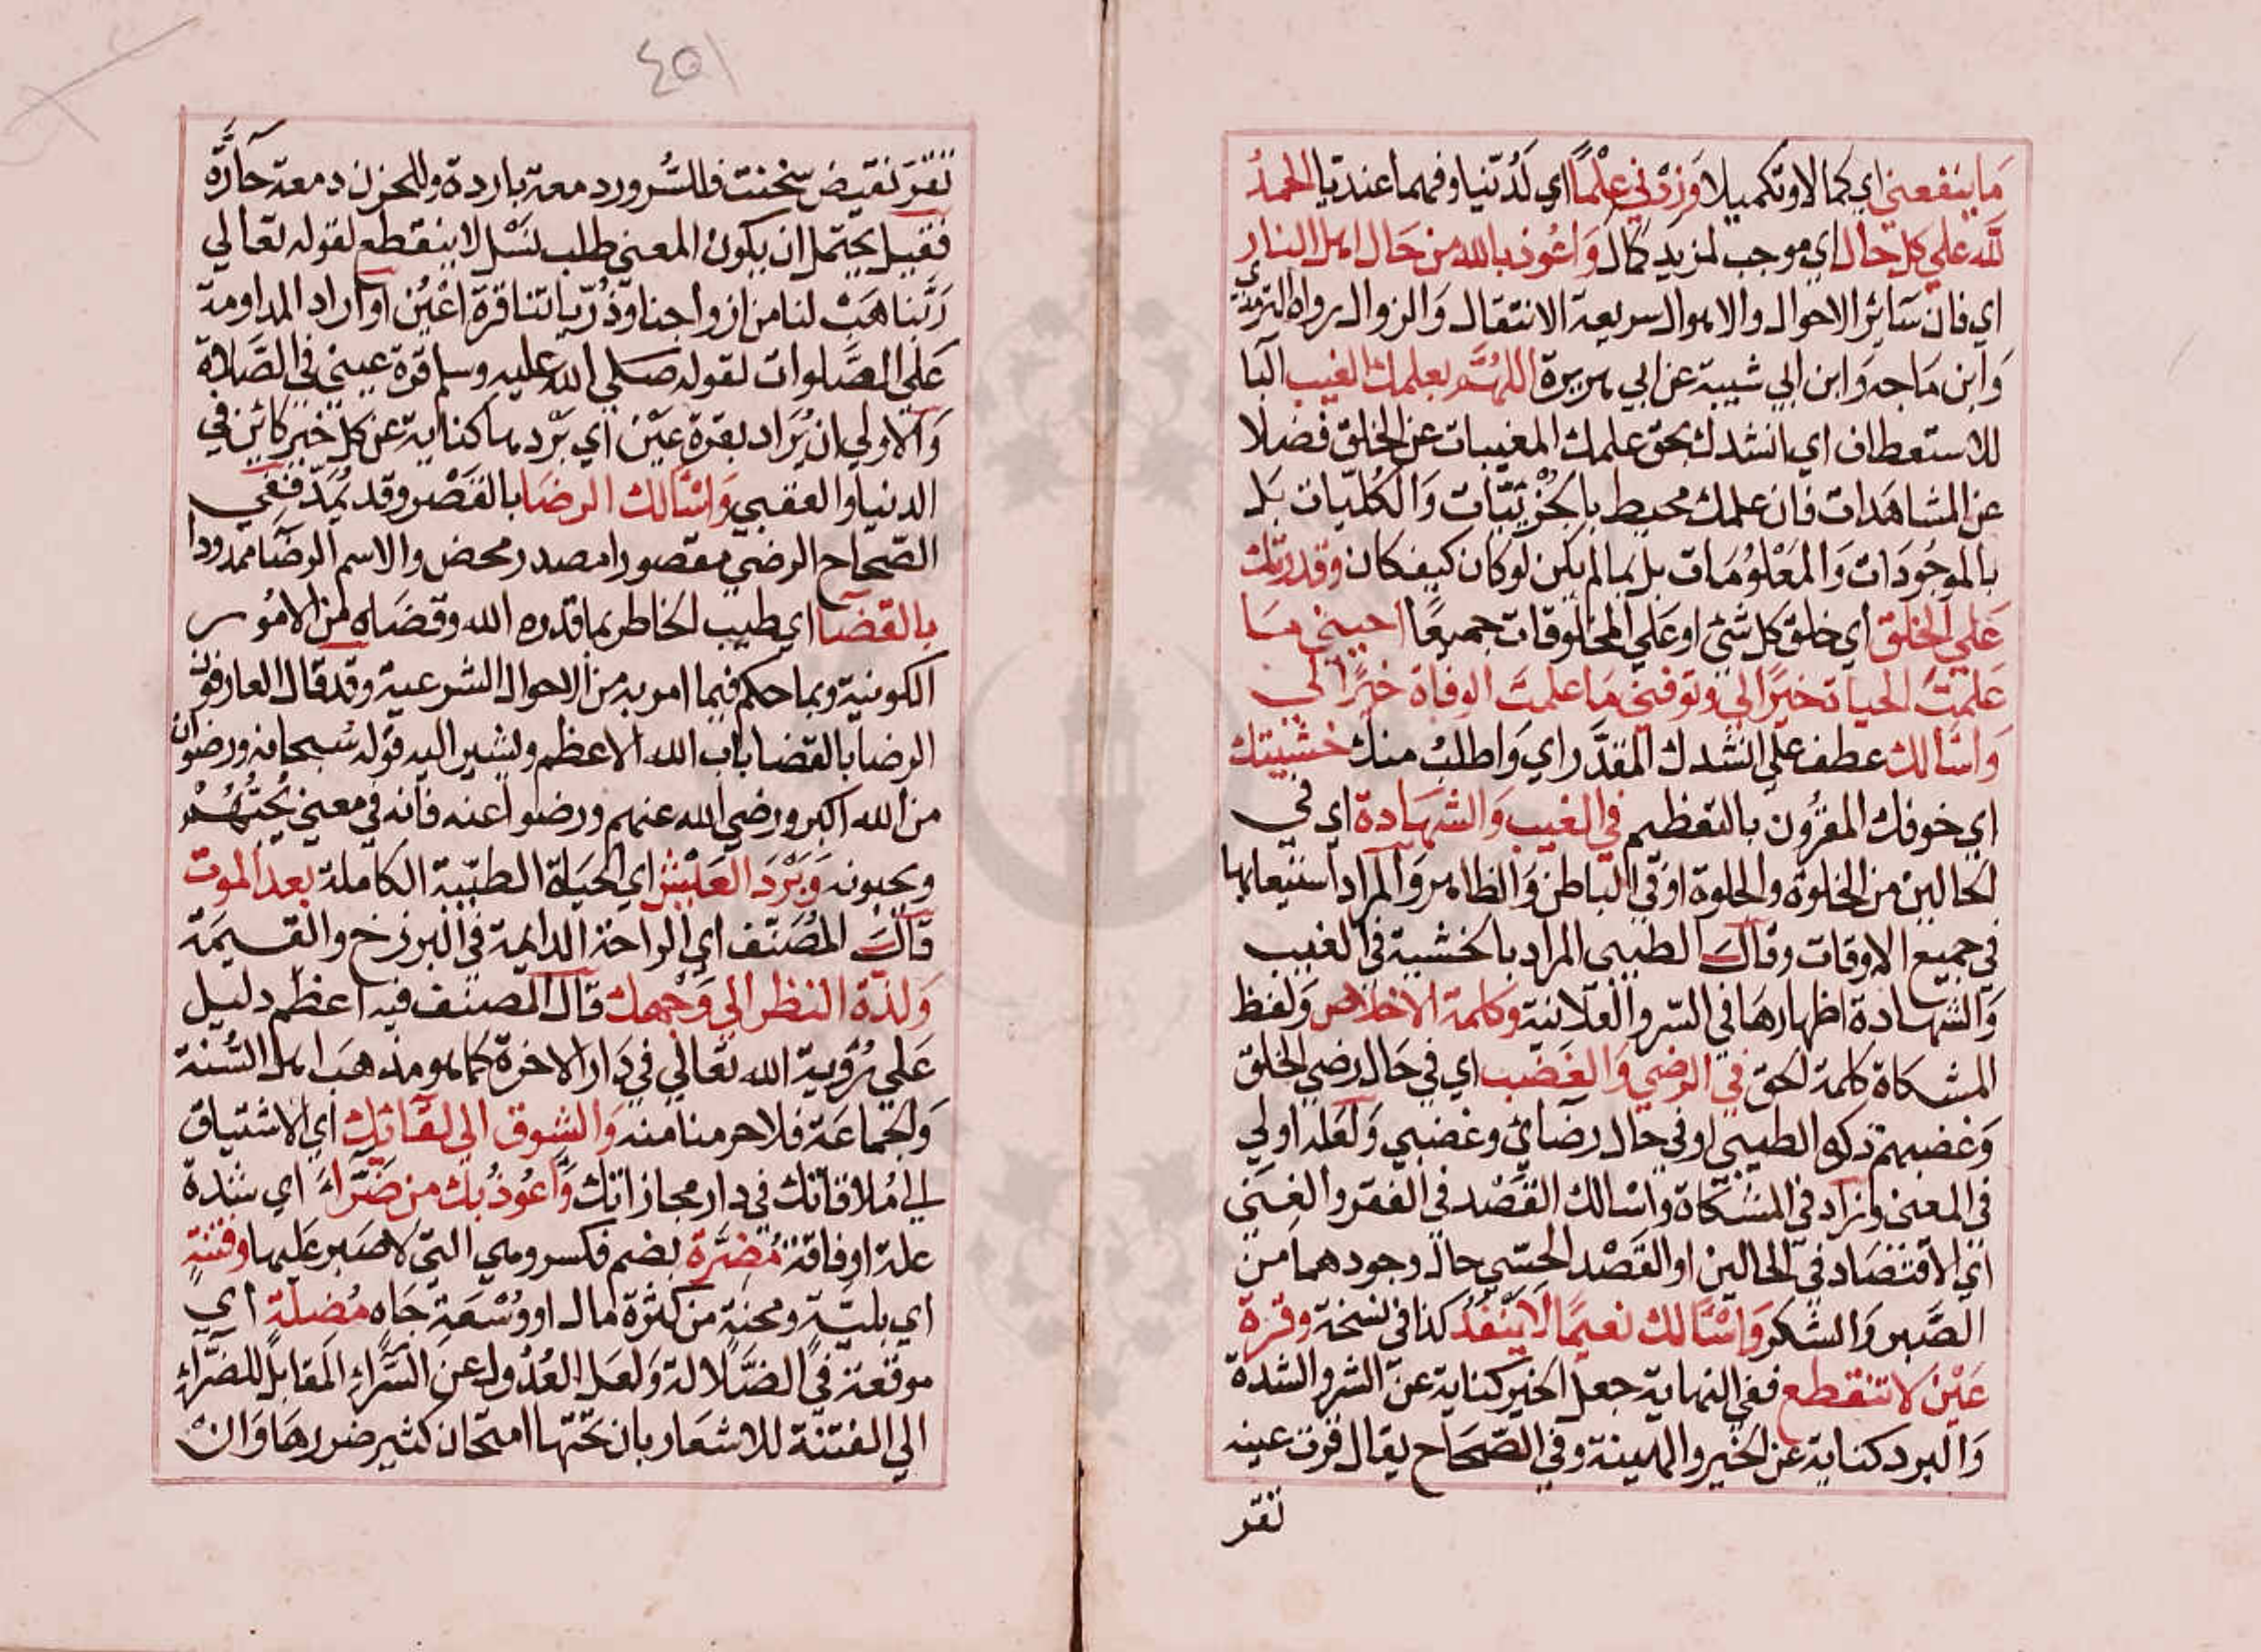 ما ينفعني اي كمالا وتكميلا وزدني علما اي لدنيا وفهما عنديا الحمد
لله علي كل حال اي موجب لمزيد كمال واعوذ بالله من حال اهل النار
اي فان سائر الاحوال والاهوال سريعة الانتقال والزوال رواه الترمذي
وابن ماجه وابن ابي شيبة عن ابي هريرة اللهم بعلمك الغيب البا
للاستعطاف اي انشدك بحق علمك المغيبات عن الخلق فضلا
عن المشاهدات فان علمك محيط بالجزئيات والكليات بل
بالموجودات والمعلومات بل بما لم يكن لو كان كيف كان وقدرتك
علي الخلق اي خلق كل شئ او علي المخلوقات جميعا احييني ما
علمت الحياة خيرا لي وتوفني ما علمت الوفاة خيرا لي
واسالك عطف علي انشدك المقدر اي واطلب منك خشيتك
اي خوفك المقرون بالتعظيم في الغيب والشهادة اي في
الحالين من الخلوة والجلوة او في الباطن والظاهر والمراد استيعابها
في جميع الاوقات وقال الطيبي المراد بالخشية في الغيب
والشهادة اظهارها في السر والعلانية وكلمة الاخلاص ولفظ
المشكاة كلمة الحق في الرضي والغضب اي في حال رضي الخلق
وغضبهم ذكره الطيبي او في حال رضائي وغضبي ولعله اولي
في المعني وزاد في المشكاة واسالك القصد في الفقر والغني
اي الاقتصاد في الحالين او القصد الحسي حال وجودهما من
الصبر والشكر واسالك نعيما لا ينفد كذا في نسخة وقرة
عين لا تنقطع ففي النهاية جعل الخير كناية عن الشر والشدة
والبرد كناية عن الخير والهينة وفي الصحاح يقال قرت عينه
تقر
٤٥١
تقر نقيض سخنت فللسرور دمعة باردة وللحزن دمعة حارة
فقيل يحتمل ان يكون المعني طلب نسل لا ينقطع لقوله تعالي
ربنا هب لنا من ازواجنا وذرياتنا قرة اعين او اراد المداومة
علي الصلوات لقوله صلي الله عليه وسلم قرة عيني في الصلاة
والاولي ان يراد بقرة عين اي بردها كناية عن كل خير كائن في
الدنيا والعقبي واسالك الرضا بالقصر وقد يمد ففي
الصحاح الرضي مقصورا مصدر محض والاسم الرضا ممدودا
بالقضا اي طيب الخاطر بما قدره الله وقضاه من الامور
الكونية وبما حكم فيما امر به من الاحوال الشرعية وقد قال العارفون
الرضا بالقضا باب الله الاعظم ويشير اليه قوله سبحانه ورضوان
من الله اكبر ورضي الله عنهم ورضوا عنه فانه في معني يحبهم
ويحبونه وبرد العيش اي الحياة الطيبة الكاملة بعد الموت
قال المصنف اي الراحة الدايمة في البرزخ والقيمة
ولذة النظر الي وجهك قال المصنف فيه اعظم دليل
علي رؤية الله تعالي في دار الاخرة كما هو مذهب اهل السنة
والجماعة فلا حرمنا منه والشوق الي لقائك اي الاشتياق
الي ملاقاتك في دار مجازاتك واعوذ بك من ضراء اي شدة
علة او فاقة مضرة بضم فكسر وهي التي لا صبر عليها وفتنة
اي بلية ومحنة من كثرة مال او وسعة جاه مضلة اي
موقعة في الضلالة ولعل العدول عن السراء المقابل للضراء
الي الفتنة للاشعار بان تحتها امتحان كثير ضررها وان